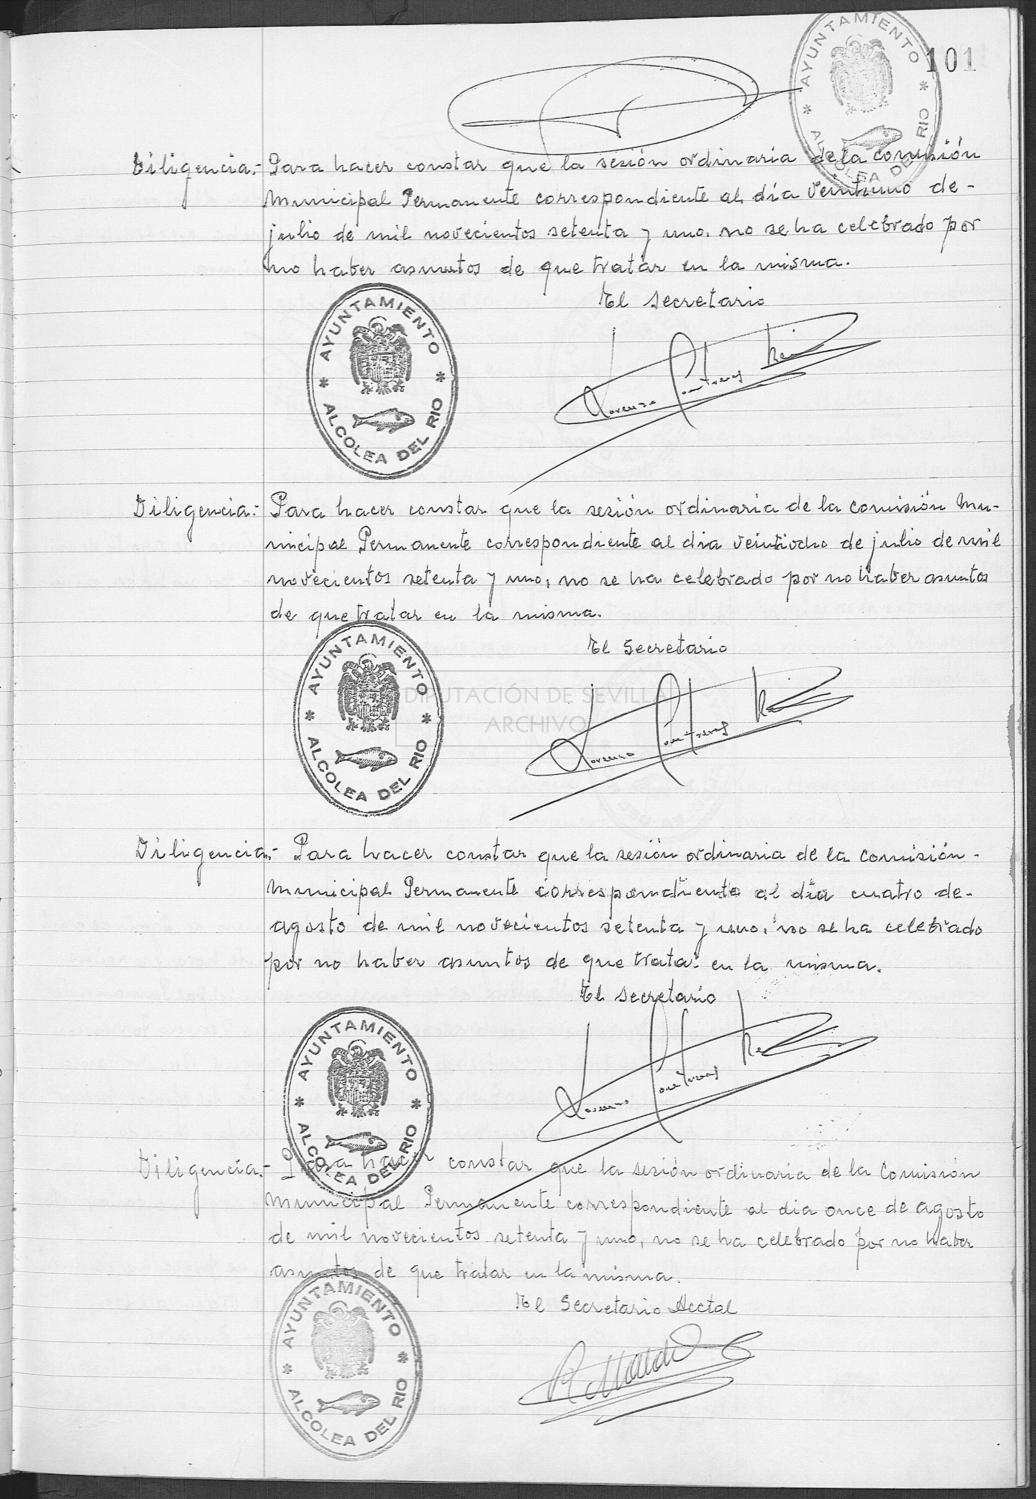 AYUNTAMIENTO * ALCOLEA DEL RIO *
101
Diligencia.- Para hacer constar que la sesión ordinaria de la Comisión
Municipal Permanente correspondiente al día veintiuno de-
julio de mil novecientos setenta y uno, no se ha celebrado por
no haber asuntos de que tratar en la misma.
El Secretario
AYUNTAMIENTO * ALCOLEA DEL RIO *
Lorenzo Contreras
Diligencia:- Para hacer constar que la sesión ordinaria de la Comisión Mu-
nicipal Permanente correspondiente al dia veintiocho de julio de mil
novecientos setenta y uno, no se ha celebrado por no haber asuntos
de que tratar en la misma.
El Secretario
AYUNTAMIENTO * ALCOLEA DEL RIO *
DIPUTACIÓN DE SEVILLA
ARCHIVO
Lorenzo Contreras
Diligencia:- Para hacer constar que la sesión ordinaria de la Comisión-
Municipal Permanente correspondiente al día cuatro de-
agosto de mil novecientos setenta y uno, no se ha celebrado
por no haber asuntos de que tratar en la misma.
El Secretario
AYUNTAMIENTO * ALCOLEA DEL RIO *
Lorenzo Contreras
Diligencia.- Para hacer constar que la sesión ordinaria de la Comisión
Municipal Permanente correspondiente al dia once de agosto
de mil novecientos setenta y uno, no se ha celebrado por no haber
asuntos de que tratar en la misma.
El Secretario Acctal
AYUNTAMIENTO * ALCOLEA DEL RIO *